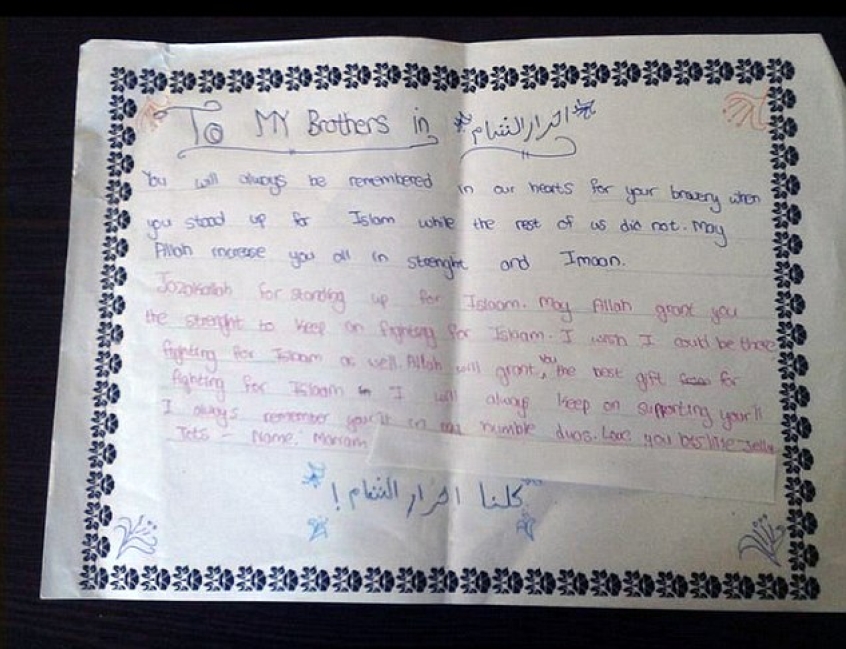 To MY Brothers in احرار الشام
You will always be remembered in our hearts for your bravery when
you stood up for Islam while the rest of us did not. May
Allah increase you all in strenght and Imaan.
Jazakallah for standing up for Islaam. May Allah grant you
the strenght to keep on fighting for Islaam. I wish I could be there
fighting for Islaam as well. Allah will grant you the best gift for
fighting for Islaam I will always keep on supporting your'll
I always remember you'll in humble duas. Love you
Jets - Name: Mariam
كلنا احرار الشام !